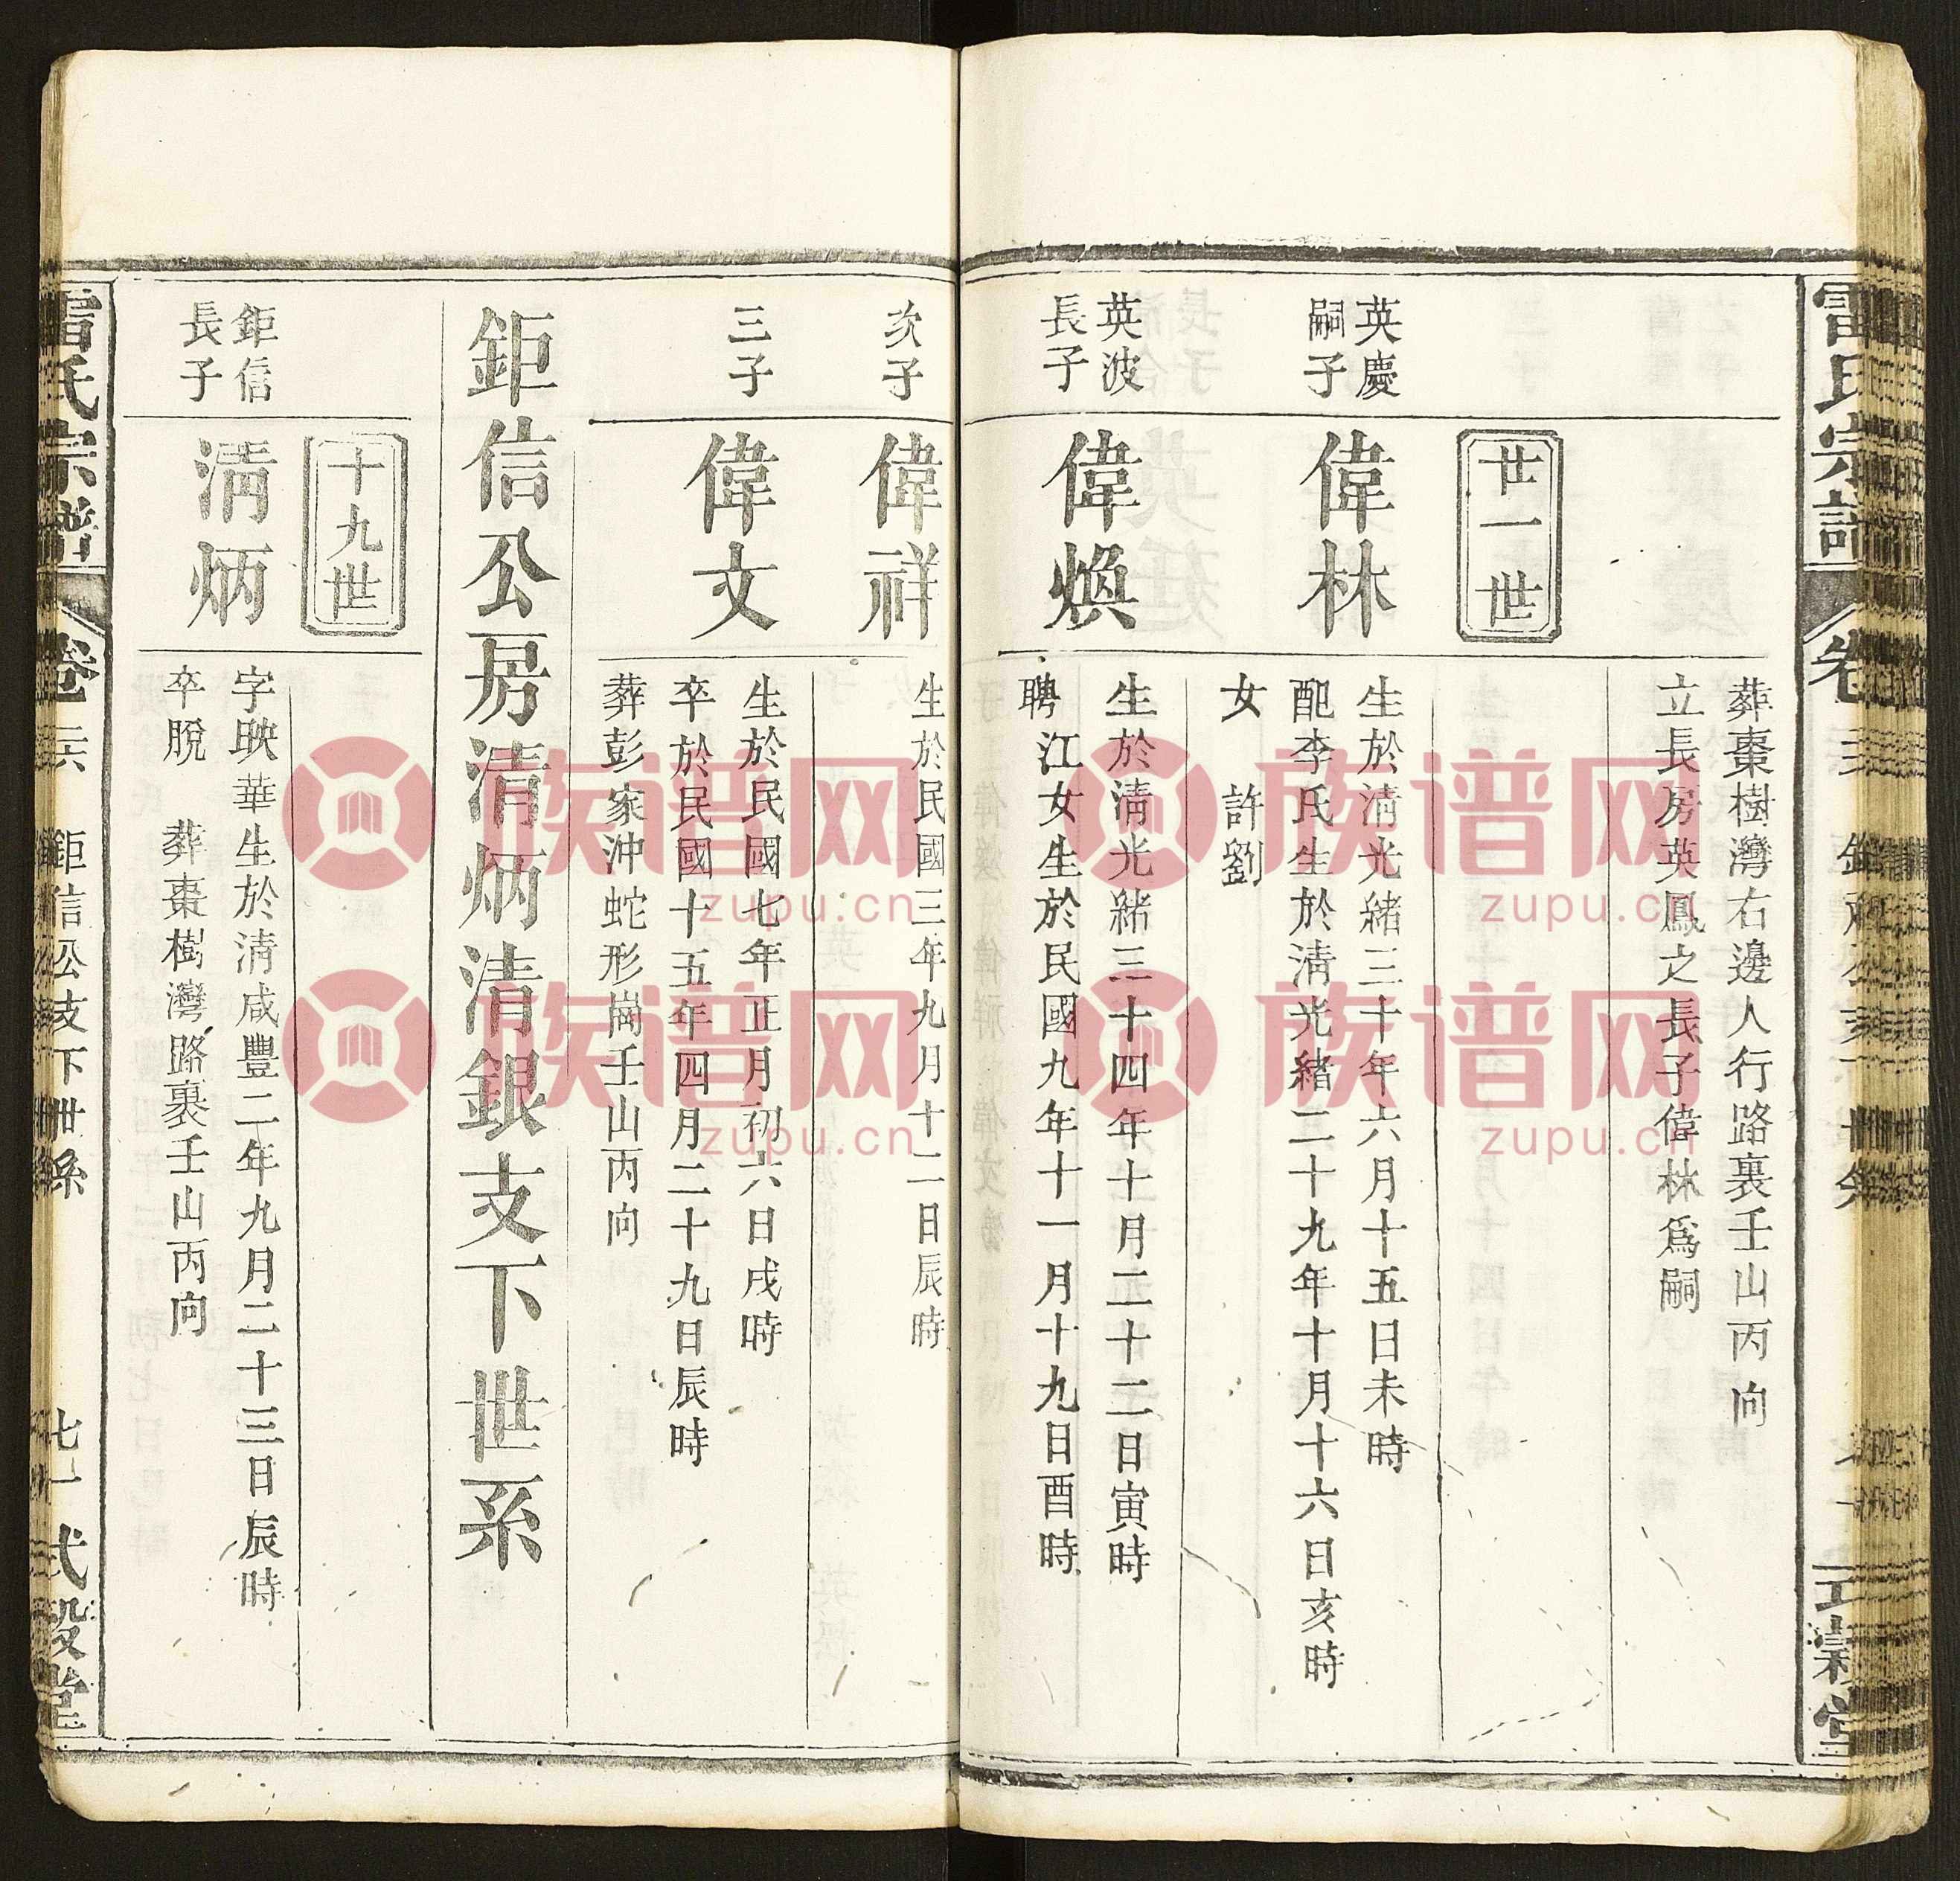 葬棗樹灣右邊人行路裏壬山丙向
立長房英鳳之長子偉林爲嗣
廿一世
英慶
嗣子
偉林
生於淸光緒三十年六月十五日未時
配李氏生於淸光緒二十九年十月十六日亥時
女　許劉
英波
長子
偉煥
生於淸光緒三十四年十月二十二日寅時
聘江女生於民國九年十一月十九日酉時
次子
偉祥
生於民國三年九月十二日辰時
三子
偉文
生於民國七年正月初六日戌時
卒於民國十五年四月二十九日辰時
葬彭家沖蛇形崗壬山丙向
鉅信公房清炳清銀支下世系
十九世
鉅信
長子
淸炳
字映華生於淸咸豐二年九月二十三日辰時
卒脫　葬棗樹灣路裏壬山丙向
雷氏宗譜
卷二六　鉅信公支下世系
七一　式穀堂
族谱网
zupu.cn
族谱网
zupu.cn
族谱网
zupu.cn
族谱网
zupu.cn